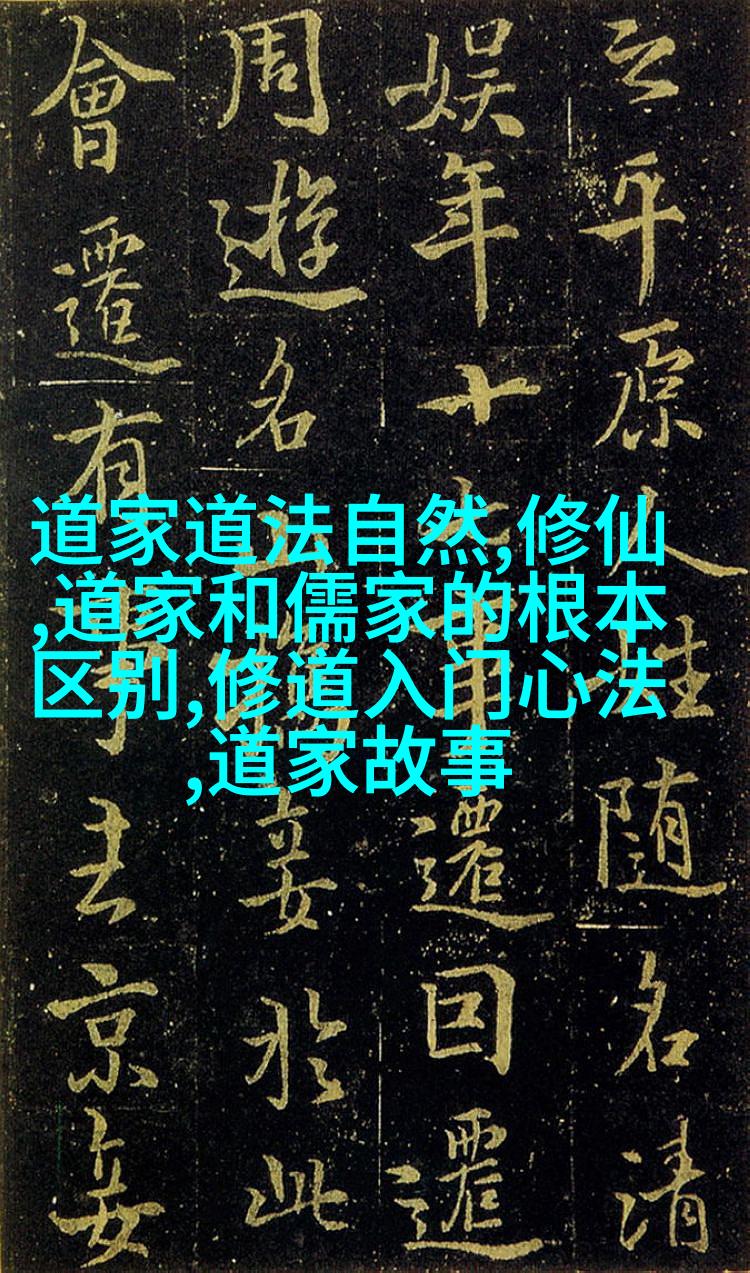 道家道法自然,修仙
,道家和儒家的根本
区别,修道入门心法
,道家故事
之平原人性随名清
娱年十還回還
周遊名妾於此
會還有事京妾